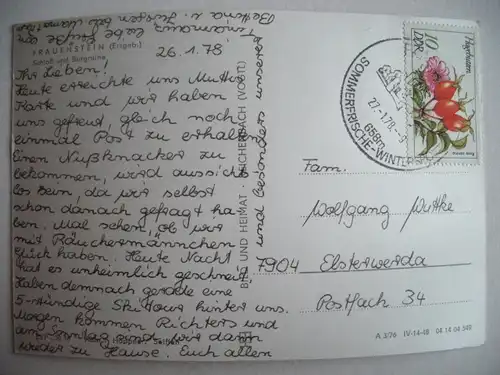 26.1.78
FRAUENSTEIN (Erzgeb.)
Schloß und Burgruine
Ihr Lieben!
Heute erreichte uns Muttis
Karte und wir haben
uns gefreut, gleich noch
einmal Post zu erhalten.
Einen Nußknacker zu
bekommen, wird aussichts-
los sein, da wir selbst
schon danach gefragt ha-
ben. Mal sehen, ob wir
mit Räuchermännchen
Glück haben. Heute Nacht
hat es unheimlich geschneit,
haben demnach gerade eine
5-stündige Skitour hinter uns.
Morgen kommen Richters und
am Sonntag sind wir dann
wieder zu Hause. Euch allen
und besonders unserer
liebe Grüße
Bettina u. Jürgen
BILD UND HEIMAT · REICHENBACH (VOGTL)
SOMMERFRISCHE-WINTERSPORT
658m
27.-1.78.-9
10
DDR
Hagebutten
Fam.
Wolfgang Wuttke
7904 Elsterwerda
Postfach 34
A 3/76 IV-14-48 04 14 04 549